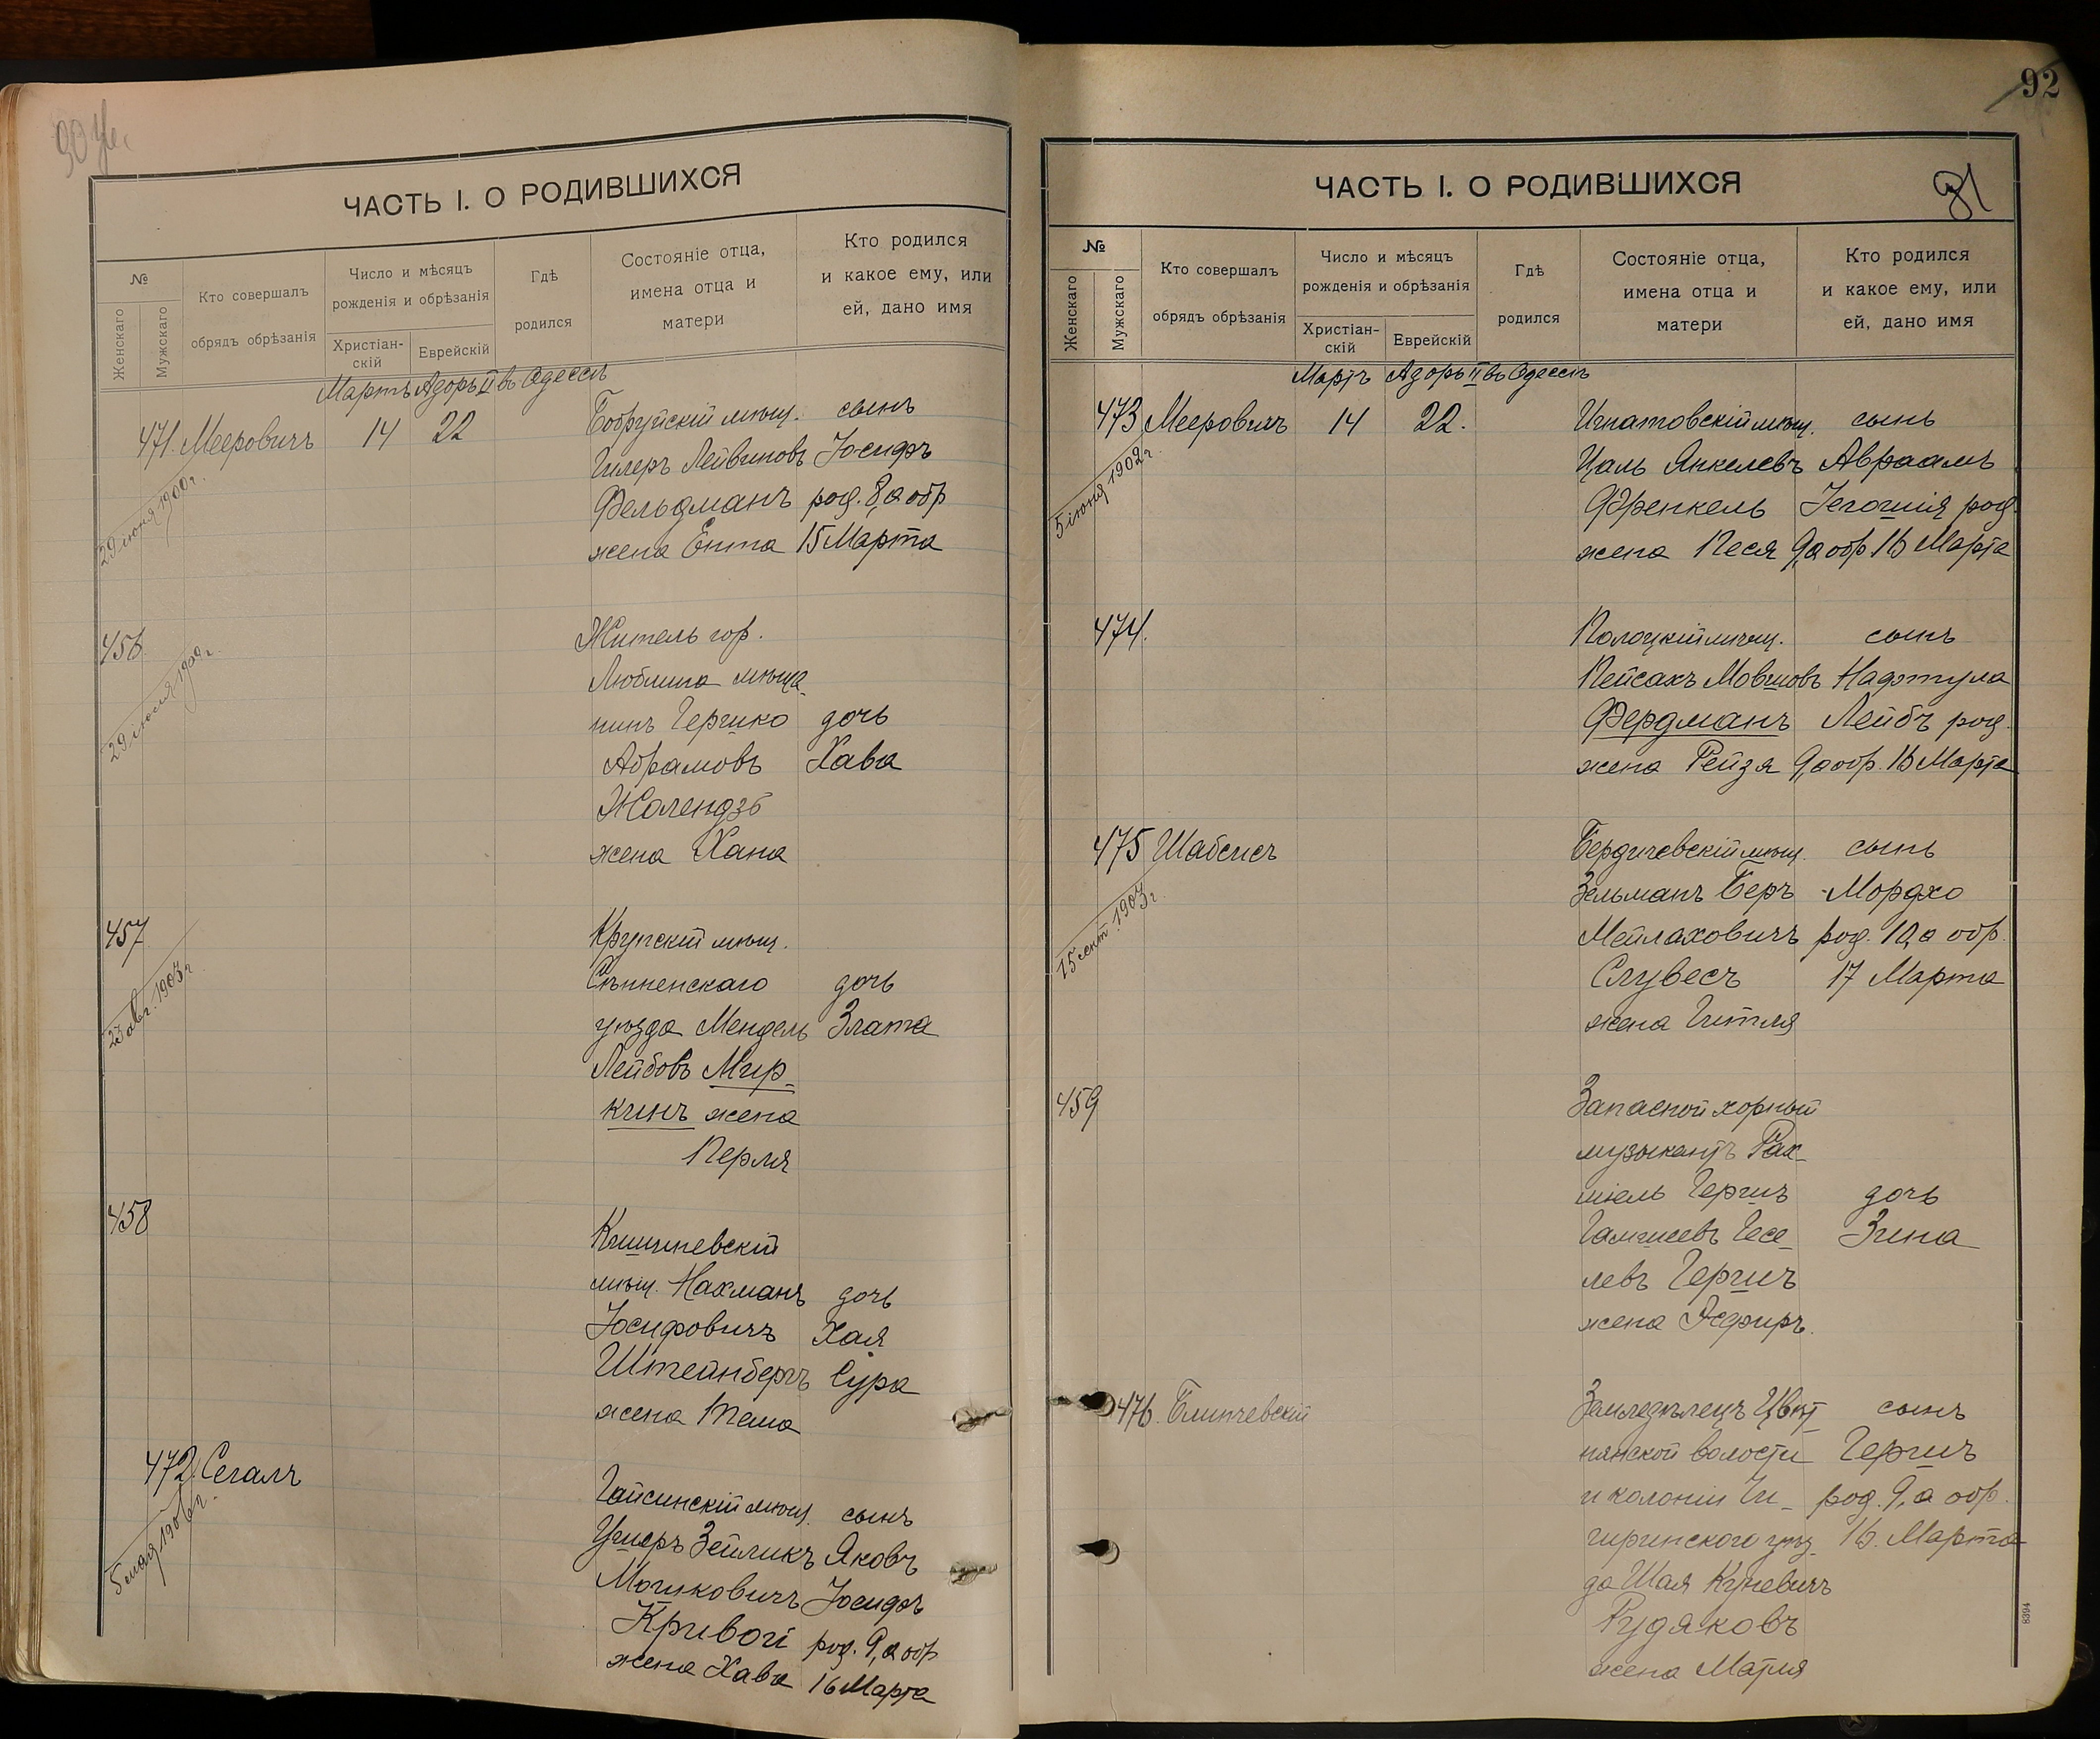 ЧАСТЬ I. О РОДИВШИХСЯ
№
Женскаго
Мужскаго
Кто совершалъ
обрядъ обрѣзанія
Число и мѣсяцъ
рожденія и обрѣзанія
Христіан-
скій
Еврейскій
Гдѣ
родился
Состояніе отца,
имена отца и
матери
Кто родился
и какое ему, или
ей, дано имя
Мартъ Адоръ II въ Одессѣ
471. Мееровичъ 14 22 Бобруйскій мѣщ. сынъ
Лейвиковъ Іосифъ
Фельдманъ род. 8, а обр
жена Ента 15 Марта
29 іюня 1900 г.
456 Житель гор.
Люблина мѣща
нинъ Гершко дочь
Абрамовъ Хава
Жолендзь
жена Хана
457 Крупскій мѣщ.
Сѣнненскаго дочь
уѣзда Мендель Злата
Лейбовъ Мир-
кинъ жена
Перля
23 авг. 1903 г.
458 Кишиневскій
мѣщ. Нахманъ дочь
Іосифовичъ Хая
Штейнбергъ Сура
жена
472. Сегалъ Гайсинскій мѣщ. сынъ
Ушеръ Зейликъ Яковъ
Мошковичъ Іосифъ
Кривой род. 9, а обр
жена Хава 16 Марта
5 мая 1906 г.
92
ЧАСТЬ I. О РОДИВШИХСЯ
91
№
Женскаго
Мужскаго
Кто совершалъ
обрядъ обрѣзанія
Число и мѣсяцъ
рожденія и обрѣзанія
Христіан-
скій
Еврейскій
Гдѣ
родился
Состояніе отца,
имена отца и
матери
Кто родился
и какое ему, или
ей, дано имя
Мартъ Адоръ II въ Одессѣ
473 Мееровичъ 14 22. Игнатовскій мѣщ. сынъ
Цаль Янкелевъ Авраамъ
Френкель Іегошія род
жена Песя 9, а обр 16 Марта
5 іюня 1902 г.
474. Полоцкій мѣщ. сынъ
Пейсахъ Мовшовъ Нафтула
Фердманъ Лейбъ род.
жена Рейзя 9, а обр. 16 Марта
475 Шабсисъ Бердичевскій мѣщ. сынъ
Зельманъ Беръ Мордхо
Мейлаховичъ род. 10, а обр.
Слувесъ 17 Марта
жена Гитля
15 сент. 1903 г.
459 Запасной хорный
музыкантъ Рах-
міель Гершъ дочь
Зина
левъ Гершъ
жена Эсфирь
476. Блинчевскій Земледѣлецъ Цвѣт-
нянской волости Гершъ
и колоніи Чи- род. 9, а обр.
гиринскаго уѣз- 16. Марта
да Шая
Рудяковъ
жена Матля
8394